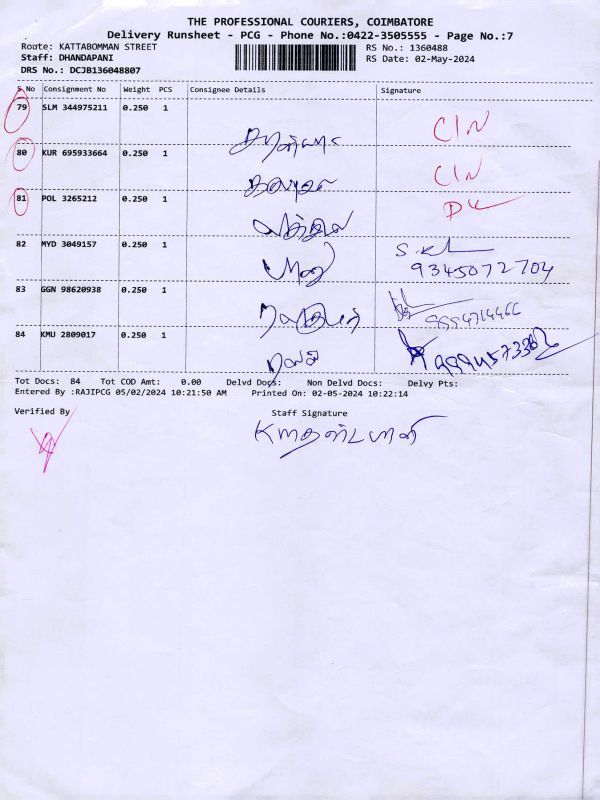 THE PROFESSIONAL COURIERS, COIMBATORE
Delivery Runsheet - PCG - Phone No.:0422-3505555 - Page No.:7
Route: KATTABOMMAN STREET RS No.: 1360488
Staff: DHANDAPANI RS Date: 02-May-2024
DRS No.: DCJB136048807
S No Consignment No Weight PCS Consignee Details Signature
79 SLM 344975211 0.250 1 CIN
80 KUR 695933664 0.250 1 CIN
81 POL 3265212 0.250 1
82 MYD 3049157 0.250 1
9345072704
83 GGN 98620938 0.250 1
84 KMU 2809017 0.250 1
Tot Docs: 84 Tot COD Amt: 0.00 Delvd Docs: Non Delvd Docs: Delvy Pts:
Entered By :RAJIPCG 05/02/2024 10:21:50 AM Printed On: 02-05-2024 10:22:14
Verified By Staff Signature